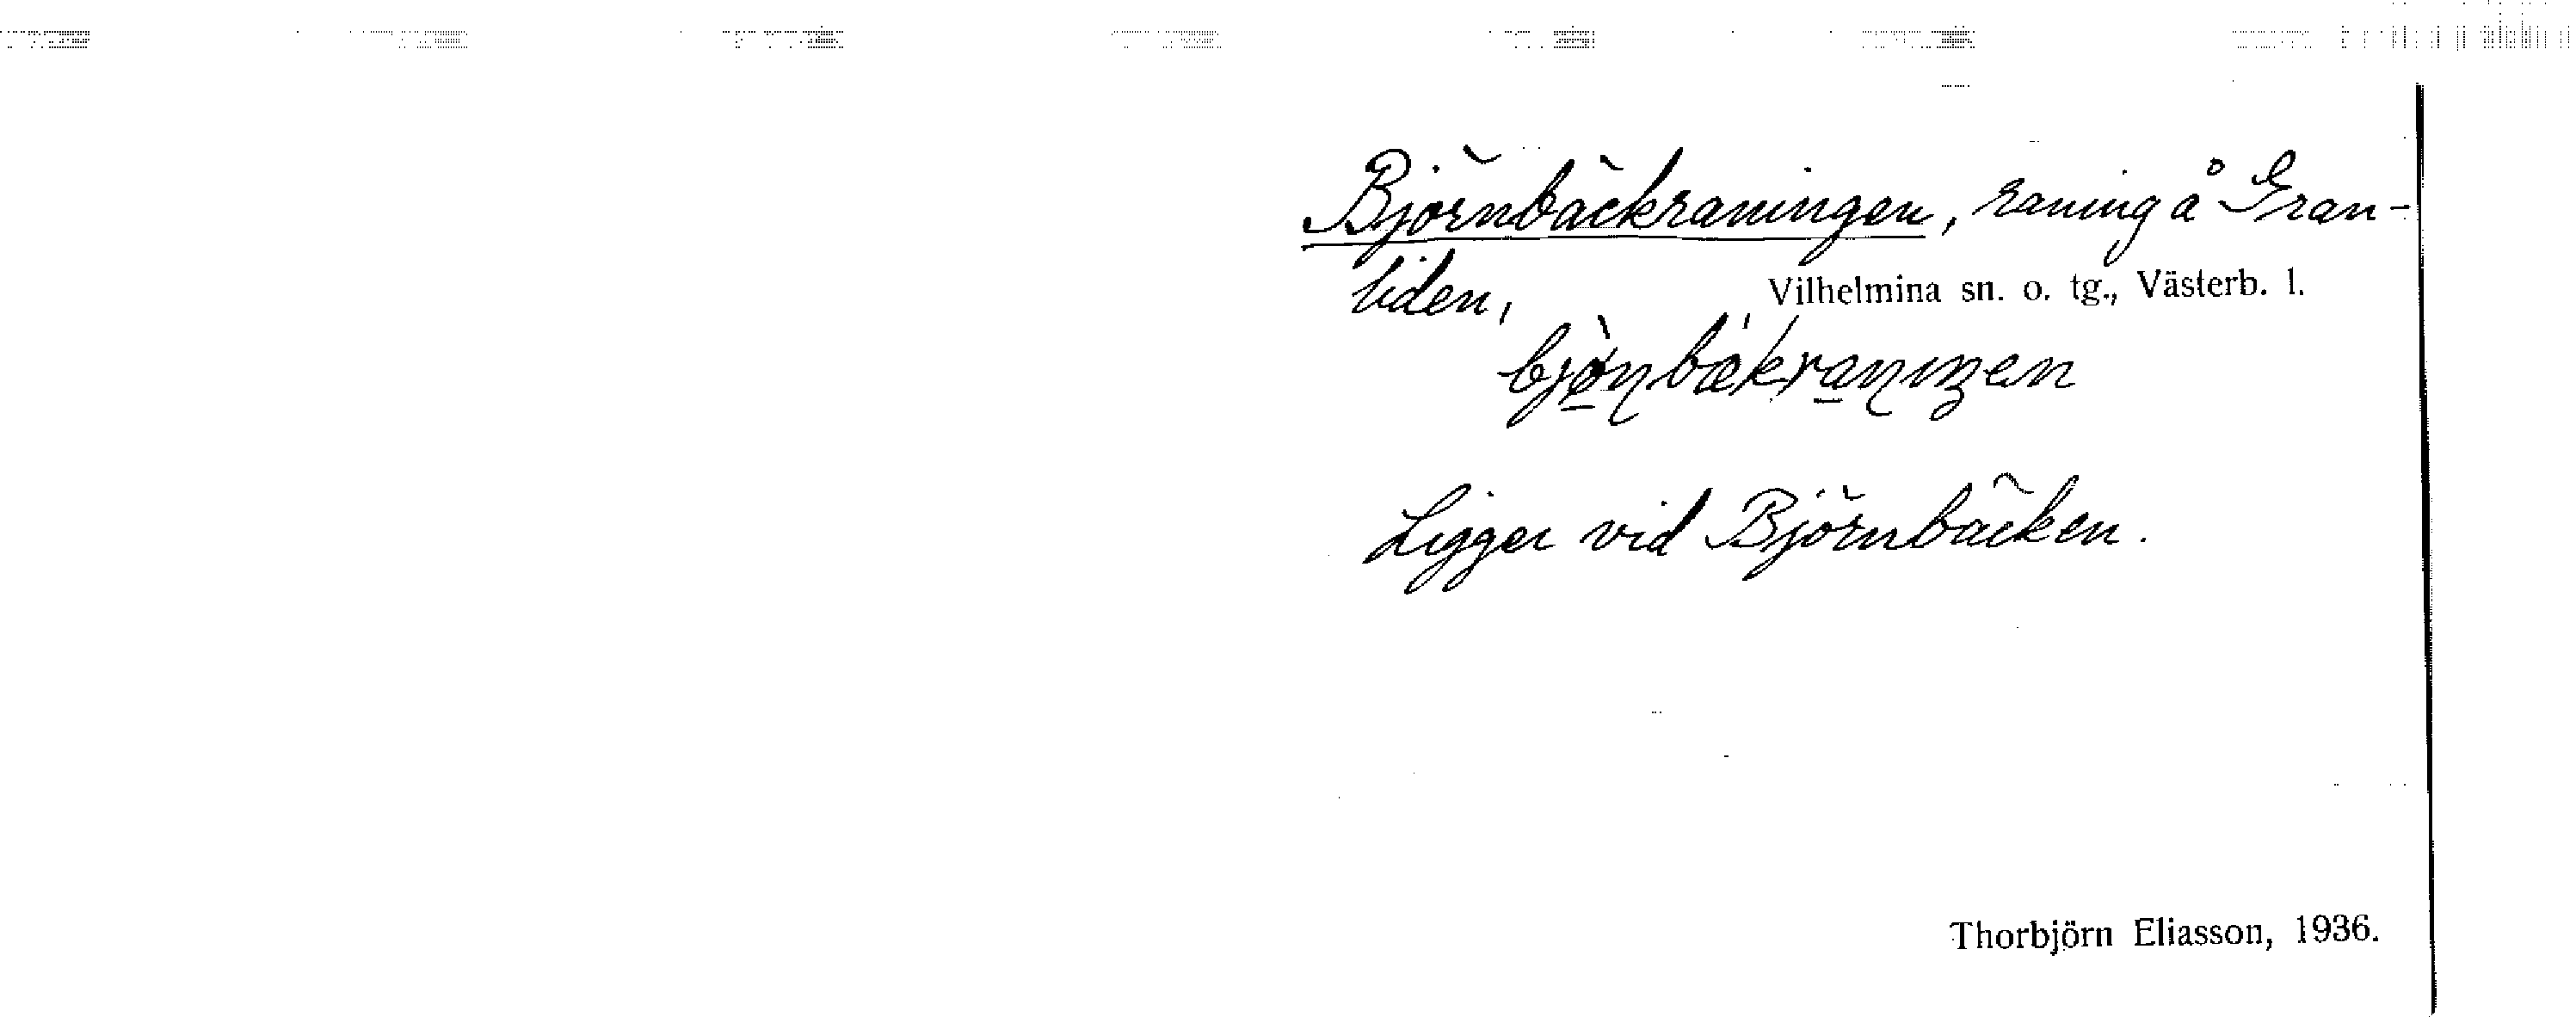 Björnbäckraningen, raning å Gran-
liden, Vilhelmina sn. o. tg., Västerb. l.
Ligger vid Björnbäcken.
Thorbjörn Eliasson, 1936.